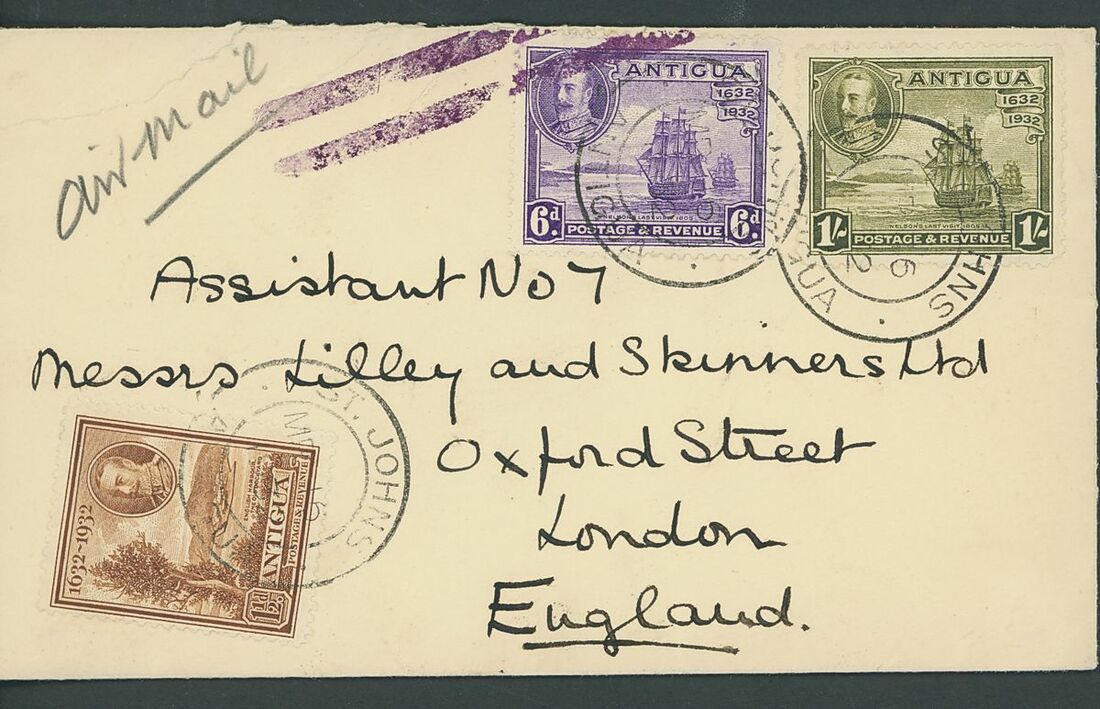 air mail
ANTIGUA
1632
1932
NELSON'S LAST VISIT 1805
6d. 6d.
POSTAGE & REVENUE
ANTIGUA
1632
1932
NELSON'S LAST VISIT 1805
1/- 1/-
POSTAGE & REVENUE
Assistant No 7
Messrs Lilley and Skinners Ltd
Oxford Street
London
England.
1632~1932
ANTIGUA
POSTAGE & REVENUE
1½d
ST. JOHNS
16
ANTIGUA
HNS
16